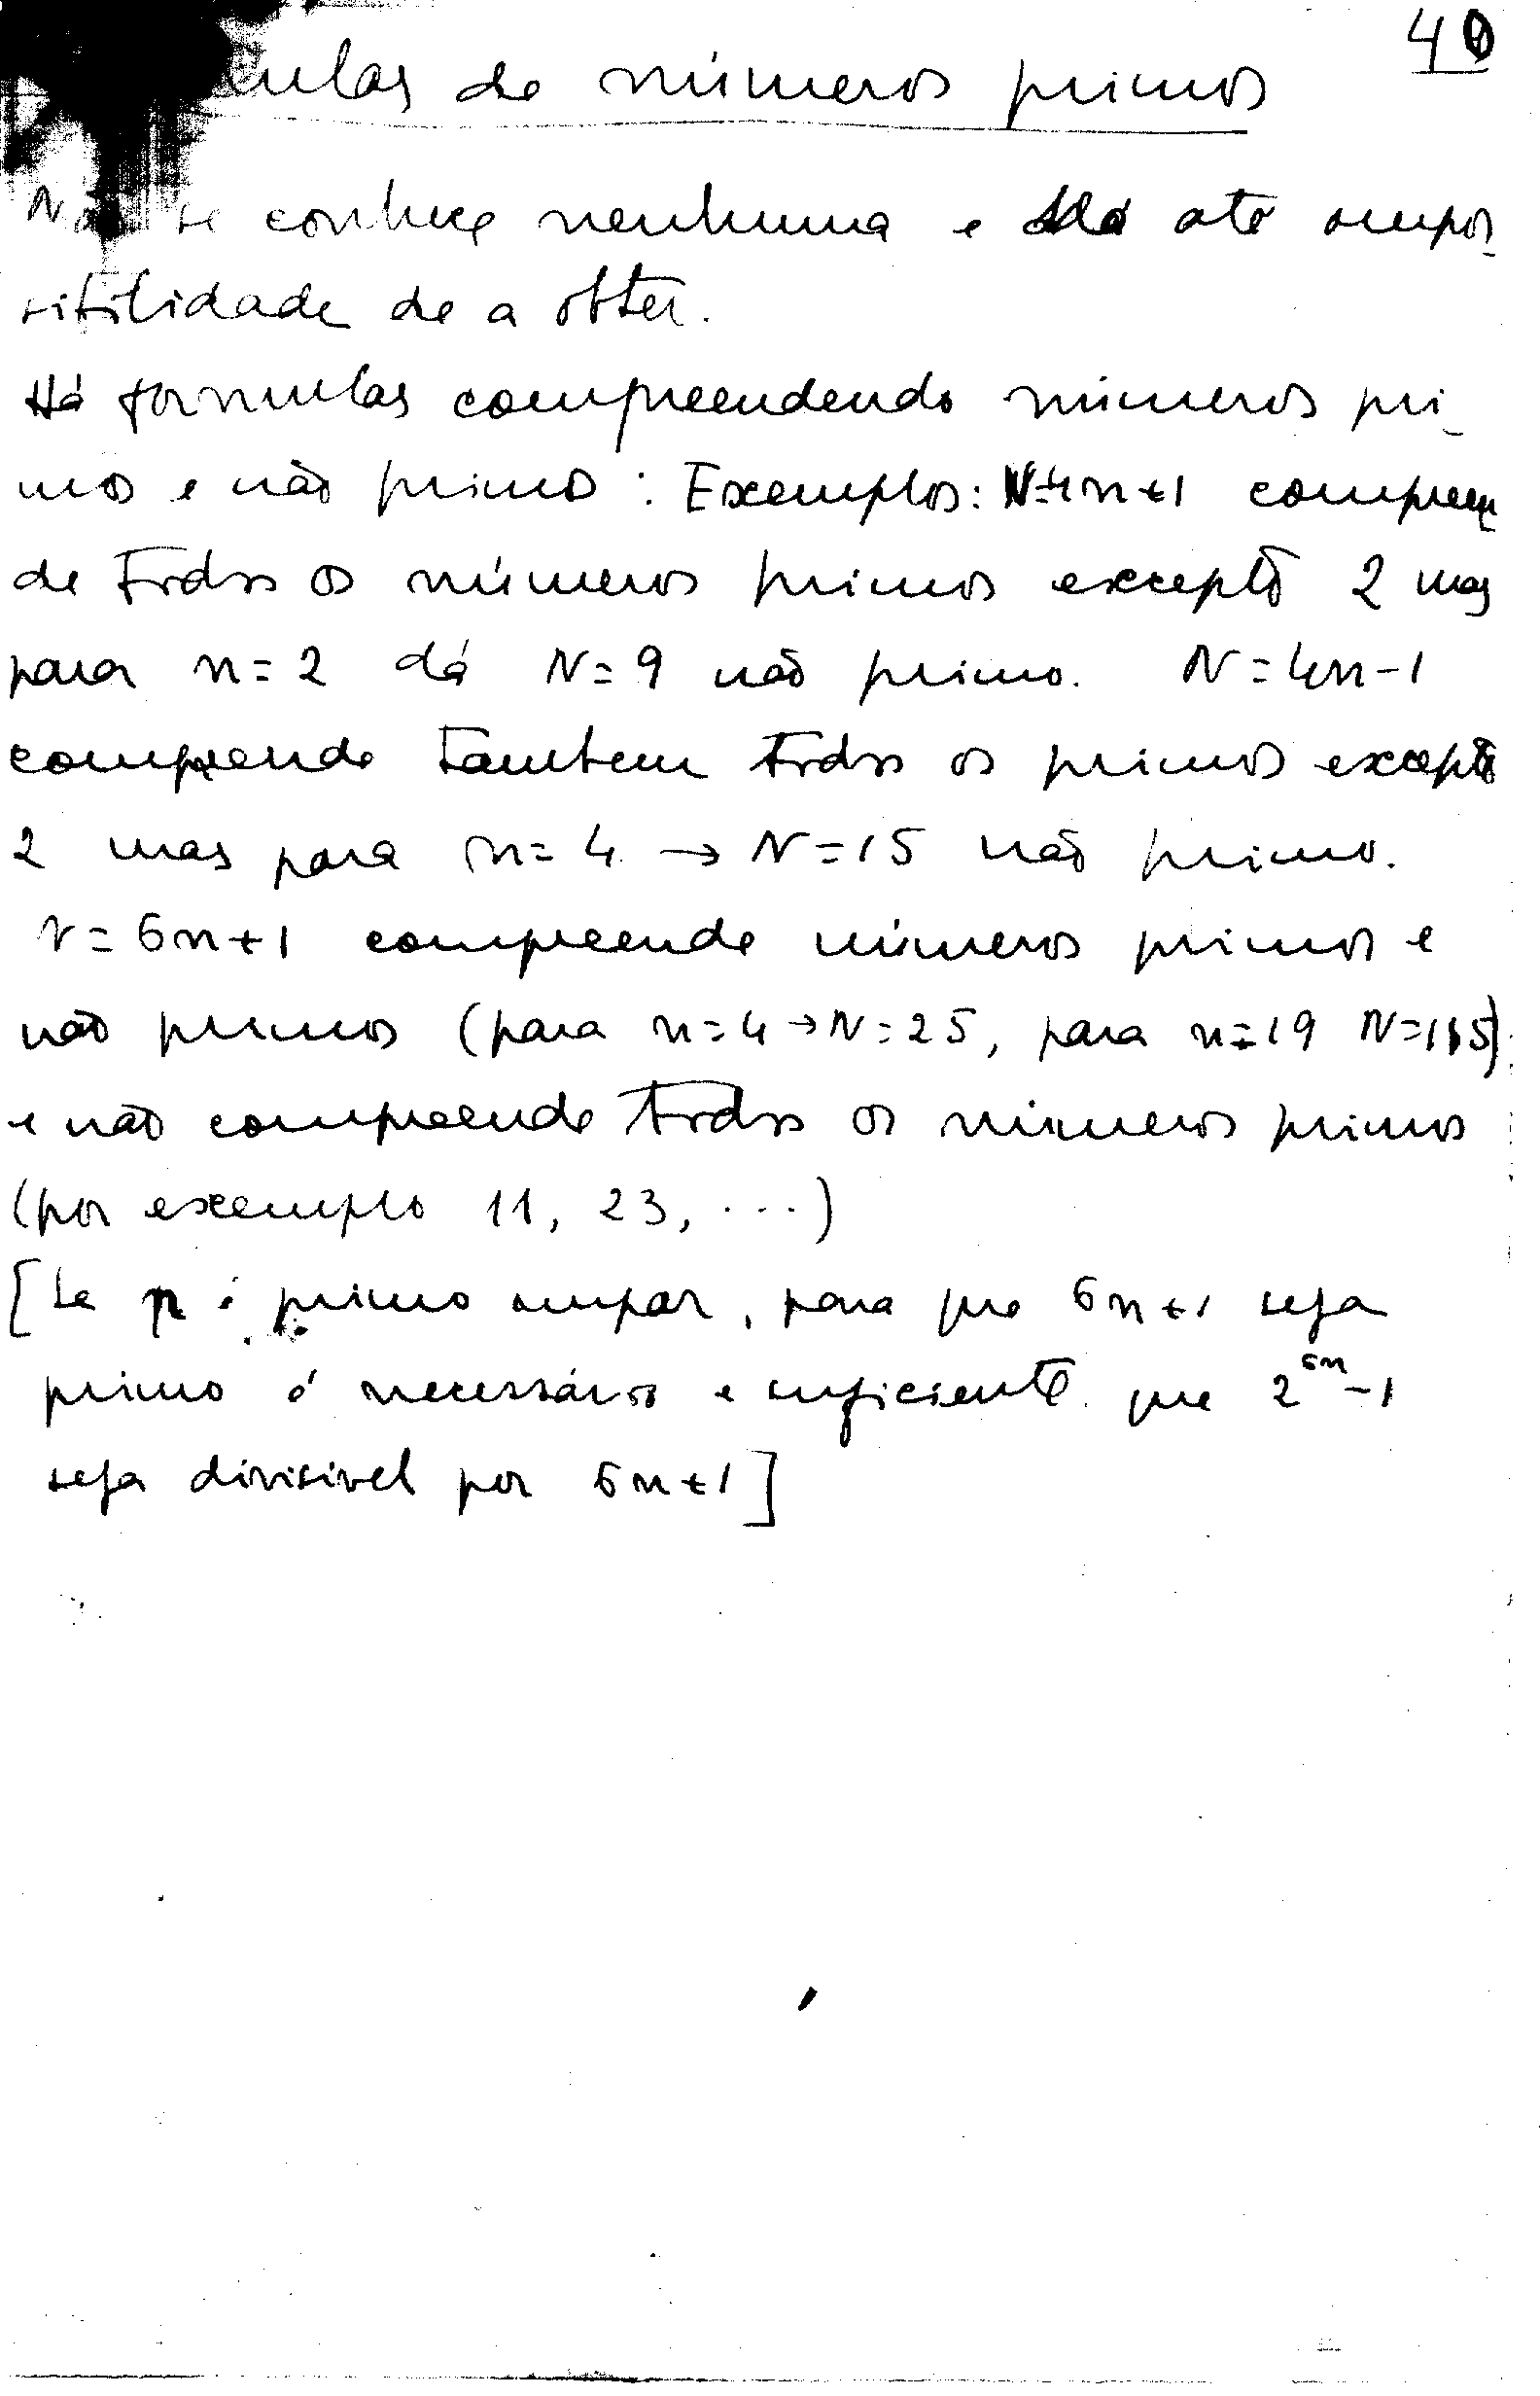 40
mulas de números primos
Não se conhece nenhuma e Há até impos-
sibilidade de a obter.
Há formulas compreendendo números pri-
mos e não primos : Exemplos: N=4n+1 compreen
de todos os números primos excepto 2 mas
para n=2 dá N=9 não primo. N=4n-1
compreende tambem todos os primos excepto
2 mas para n=4 → N=15 não primo.
N=6n+1 compreende números primos e
não primos (para n=4→N=25, para n=19 N=115)
e não compreende todos os números primos
(por exemplo 11, 23, ...)
[Se n é primo impar, para que 6n+1 seja
primo é necessário e suficiente que 2^6n-1
seja divisivel por 6n+1]